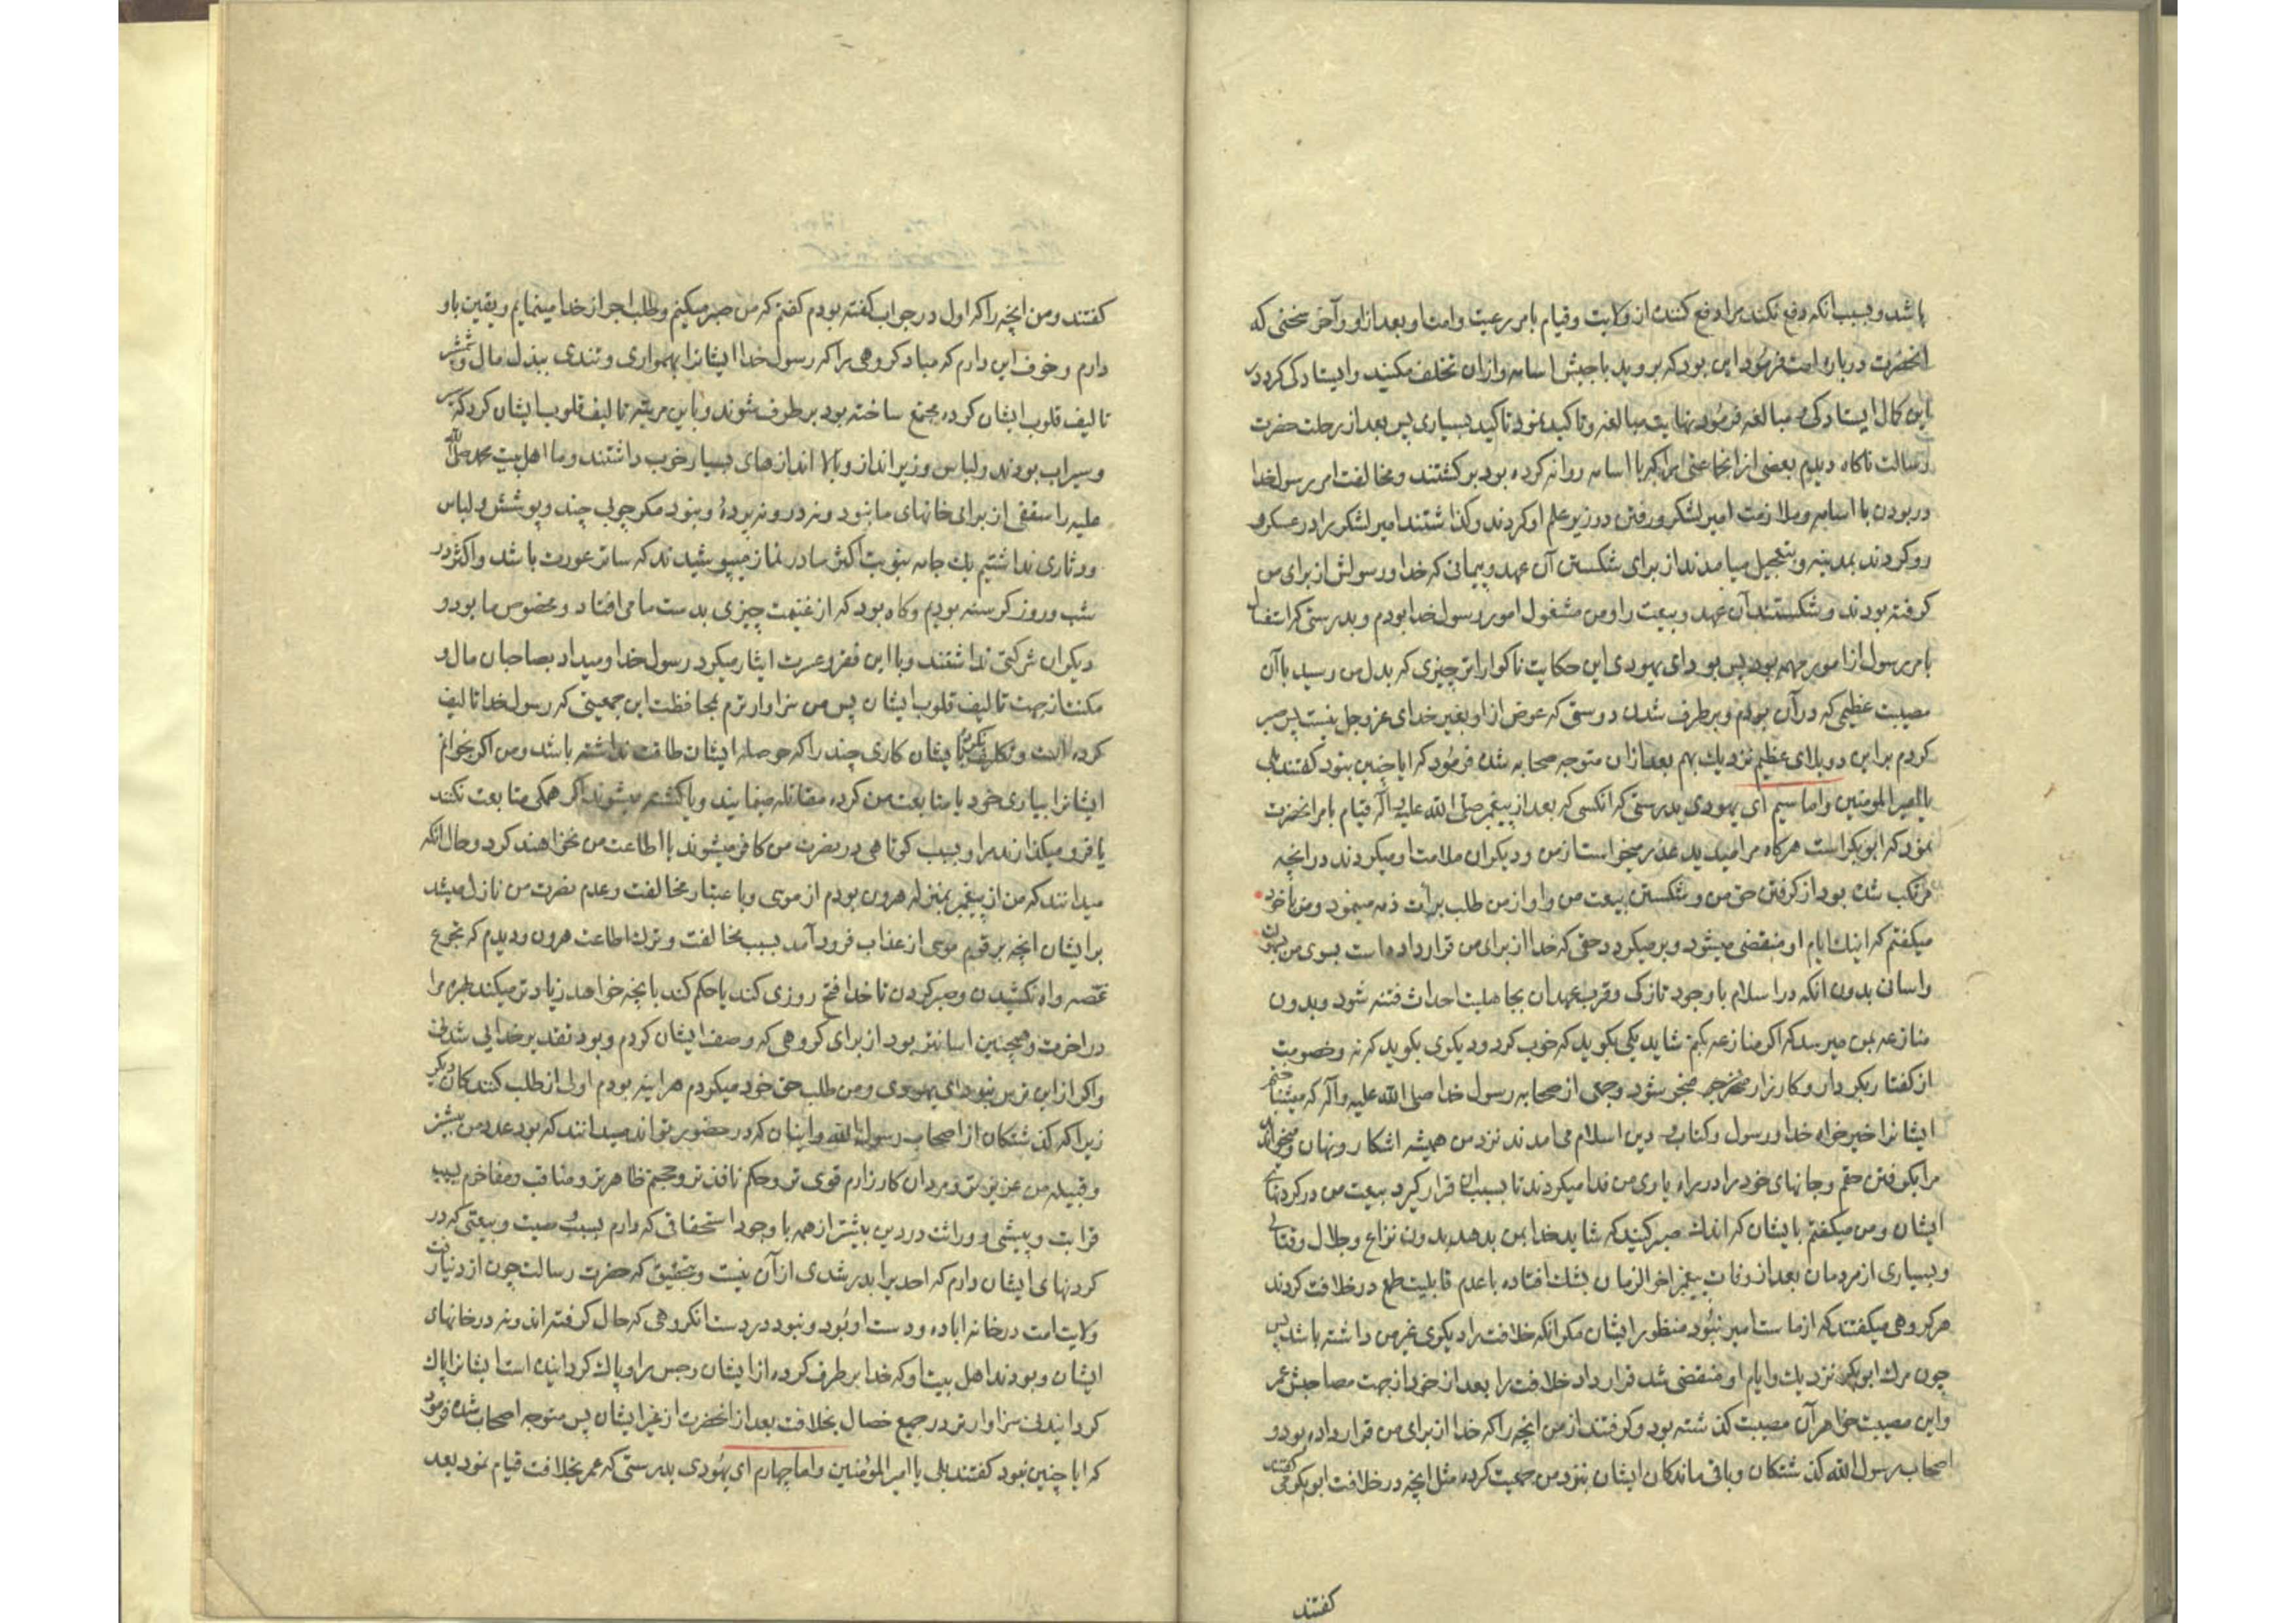 باشد و بسبب انکه دفع نکند مرا دفع کننده از ولایت و قیام بامر رعیت و امت او بعد از او و آخر سخنی که
انحضرت درباره امت فرمود این بود که بروید با جیش اسامه و ازان تخلف مکنید و ایستادکی کرد در
این کمال ایستادکی و مبالغه فرمود نهایت مبالغه و تاکید نمود تاکید بسیاری پس بعد از رحلت حضرت
رسالت ناکاه دیدم بعضی از انجماعتی را که با اسامه روانه کرده بود برکشتند و مخالفت امر رسول خدا
در بودن با اسامه و ملازمت امیر لشکر و رفتن در زیر علم او کردند و کذاشتند امیر لشکر را در عسکر و
رو کردند بمدینه و بتعجیل میامدند از برای شکستن آن عهد و پیمانی که خدا و رسولش از برای من
کرفته بودند و شکستند آن عهد و بیعت را و من مشغول امور رسول خدا بودم و بدرستی که اشتغال
بامر رسول از امور مهمه بود پس بود ای یهودی این حکایت ناکوارا تر چیزی که بدل من رسید با آن
مصیبت عظیمی که در آن بودم و برطرف شدن دوستی که عوض از او بغیر خدای عز و جل نیست پس صبر
کردم بر این دو بلای عظیم نزدیك بهم بعد ازان متوجه صحابه شده فرمود که ایا چنین نبود کفتند بلی
یا امیر المومنین و اما سیم ای یهودی بدرستی که انکسی که بعد از پیغمبر صلی الله علیه و آله قیام بامر انحضرت
نمود که ابو بکر است هرکاه مرا میدید عذر میخواست از من و دیکران ملامت او میکردند در انچه
مرتکب شده بود از کرفتن حق من و شکستن بیعت من و او از من طلب برائت ذمه مینمود و من با خود
میکفتم که اینك ایام او منقضی میشود و بر میکردد حقی که خدا از برای من قرار داده است بسوی من بسهولت
و اسانی بدون انکه در اسلام با وجود تازکی و قرب عهد ان بجاهلیت احداث فتنه شود و بدون
منازعه بمن میرسد که اکر منازعه بکنم شاید یکی بکوید که خوب کرد و دیکری بکوید که نه و خصومت
از کفتار بکردار و کارزار منجر شود و جمعی از صحابه رسول خدا صلی الله علیه و آله که میشناختم
ایشانرا خیر خواه خدا و رسول و کتاب و دین اسلام می امدند نزد من همیشه اشکار و نهان و میخواندند
مرا بکرفتن حقم و جانهای خود را در راه یاری من فدا میکردند تا بسبب ان قرار کیرد بیعت من در کردنهای
ایشان و من میکفتم بایشان که اندك صبر کنید که شاید خدا بمن بدهد بدون نزاع و جدال و قتالی
و بسیاری از مردمان بعد از وفات پیغمبر اخر الزمان بشك افتاده با عدم قابلیت طمع در خلافت کردند
هر کروهی میکفتند که از ماست امیر نبود منظور ایشان مکر انکه خلافت را دیکری غیر من داشته باشد پس
چون مرك ابو بکر نزدیك و ایام او منقضی شد قرار داد خلافت را بعد از خود از جهت مصاحبش عمر
و این مصیبت خواهر آن مصیبت کذشته بود و کرفتند از من انچه را که خدا از برای من قرار داده بود و
اصحاب رسول الله کذشتکان و باقی ماندکان ایشان بنزد من جمعیت کرده مثل انچه در خلافت ابو بکر می کفتند
کفتند
کفتند و من انچه را که اول در جواب کفته بودم کفتم که من صبر میکنم و طلب اجر از خدا مینمایم و یقین باو
دارم و خوف این دارم که مباد کروهی را که رسول خدا ایشانرا بهمواری و تندی ببذل مال و شمشیر
تالیف قلوب ایشان کرده مجتمع ساخته بود برطرف شوند و باین مرتبه تالیف قلوب ایشان کرد که سیر
و سیراب بودند و لباس و زیرانداز و بالا اندازهای بسیار خوب داشتند و ما اهل بیت محمد صلی الله
علیه را سقفی از برای خانهای ما نبود و نه در و نه پردۀ و نبود مکر چوبی چند و پوشش و لباس
و دثاری نداشتیم یك جامه بنوبت اکثر ما در نماز میپوشیدند که ساتر عورت باشد و اکثر در
شب و روز کرسنه بودیم و کاه بود که از غنیمت چیزی بدست ما می افتاد و مخصوص ما بود و
دیکران شرکتی نداشتند و با این فقر و عسرت ایثار میکرد رسول خدا و میداد بصاحبان مال و
مکنت از جهت تالیف قلوب ایشان پس من سزاوار ترم بمحافظت این جمعیتی که رسول خدا تالیف
کرده است و تکلیف نکردن بایشان کاری چند را که حوصله ایشان طاقت نداشته باشد و من اکر بخوانم
ایشانرا بیاری خود یا متابعت من کرده مقاتله مینمایند و یا کشته میشوند اکر همکی متابعت نکنند
یا فرو میکذارند مرا و بسبب کوتاهی در نصرت من کافر میشوند با اطاعت من نخواهند کرد و حال انکه
میدانند که من از پیغمبر بمنزله هرون بودم از موسی و با عتبار مخالفت و عدم نصرت من نازل میشد
بر ایشان انچه بر قوم موسی از عذاب فرود آمد بسبب مخالفت و ترك اطاعت هرون و دیدم که تجرع
غصه و اه نکشیدن و صبر کردن تا خدا فتح روزی کند یا حکم کند بانچه خواهد زیاد تر میکند بهره مرا
در اخرت و همچنین اسانتر بود از برای کروهی که وصف ایشان کردم و بود تقدیر خدایی شدنی
و اکر از این ترس نبود ای یهودی و من طلب حق خود میکردم هراینه بودم اولی از طلب کنندکان دیکر
زیرا که کذشتکان از اصحاب رسول الله و اینان که در حضور تواند میدانند که بود عدد من بیشتر
و قبیله من عزیز تر و مردان کارزارم قوی تر و حکم نافذ تر و حجتم ظاهر تر و مناقب و مفاخرم بسبب
قرابت و پیشی و وراثت در دین بیشتر از همه با وجود استحقاقی که دارم بسبب وصیت و بیعتی که در
کردنهای ایشان دارم که احدیرا بدر شدی از آن نیست و بتحقیق که حضرت رسالت چون از دنیا رفت
ولایت امت در خانه اباده و دست او بود و نبود در دست انکروهی که حال کرفته اند و نه در خانهای
ایشان و بودند اهل بیت او که خدا برطرف کرده از ایشان رجس را و پاك کردانیده است ایشانرا پاك
کردانیدنی سزاوار تر در جمیع خصال بخلافت بعد از انحضرت از غیر ایشان پس متوجه اصحاب شده فرمود
که ایا چنین نبود کفتند بلی یا امیر المؤمنین و اما چهارم ای یهودی بدرستی که عمر بخلافت قیام نمود بعد